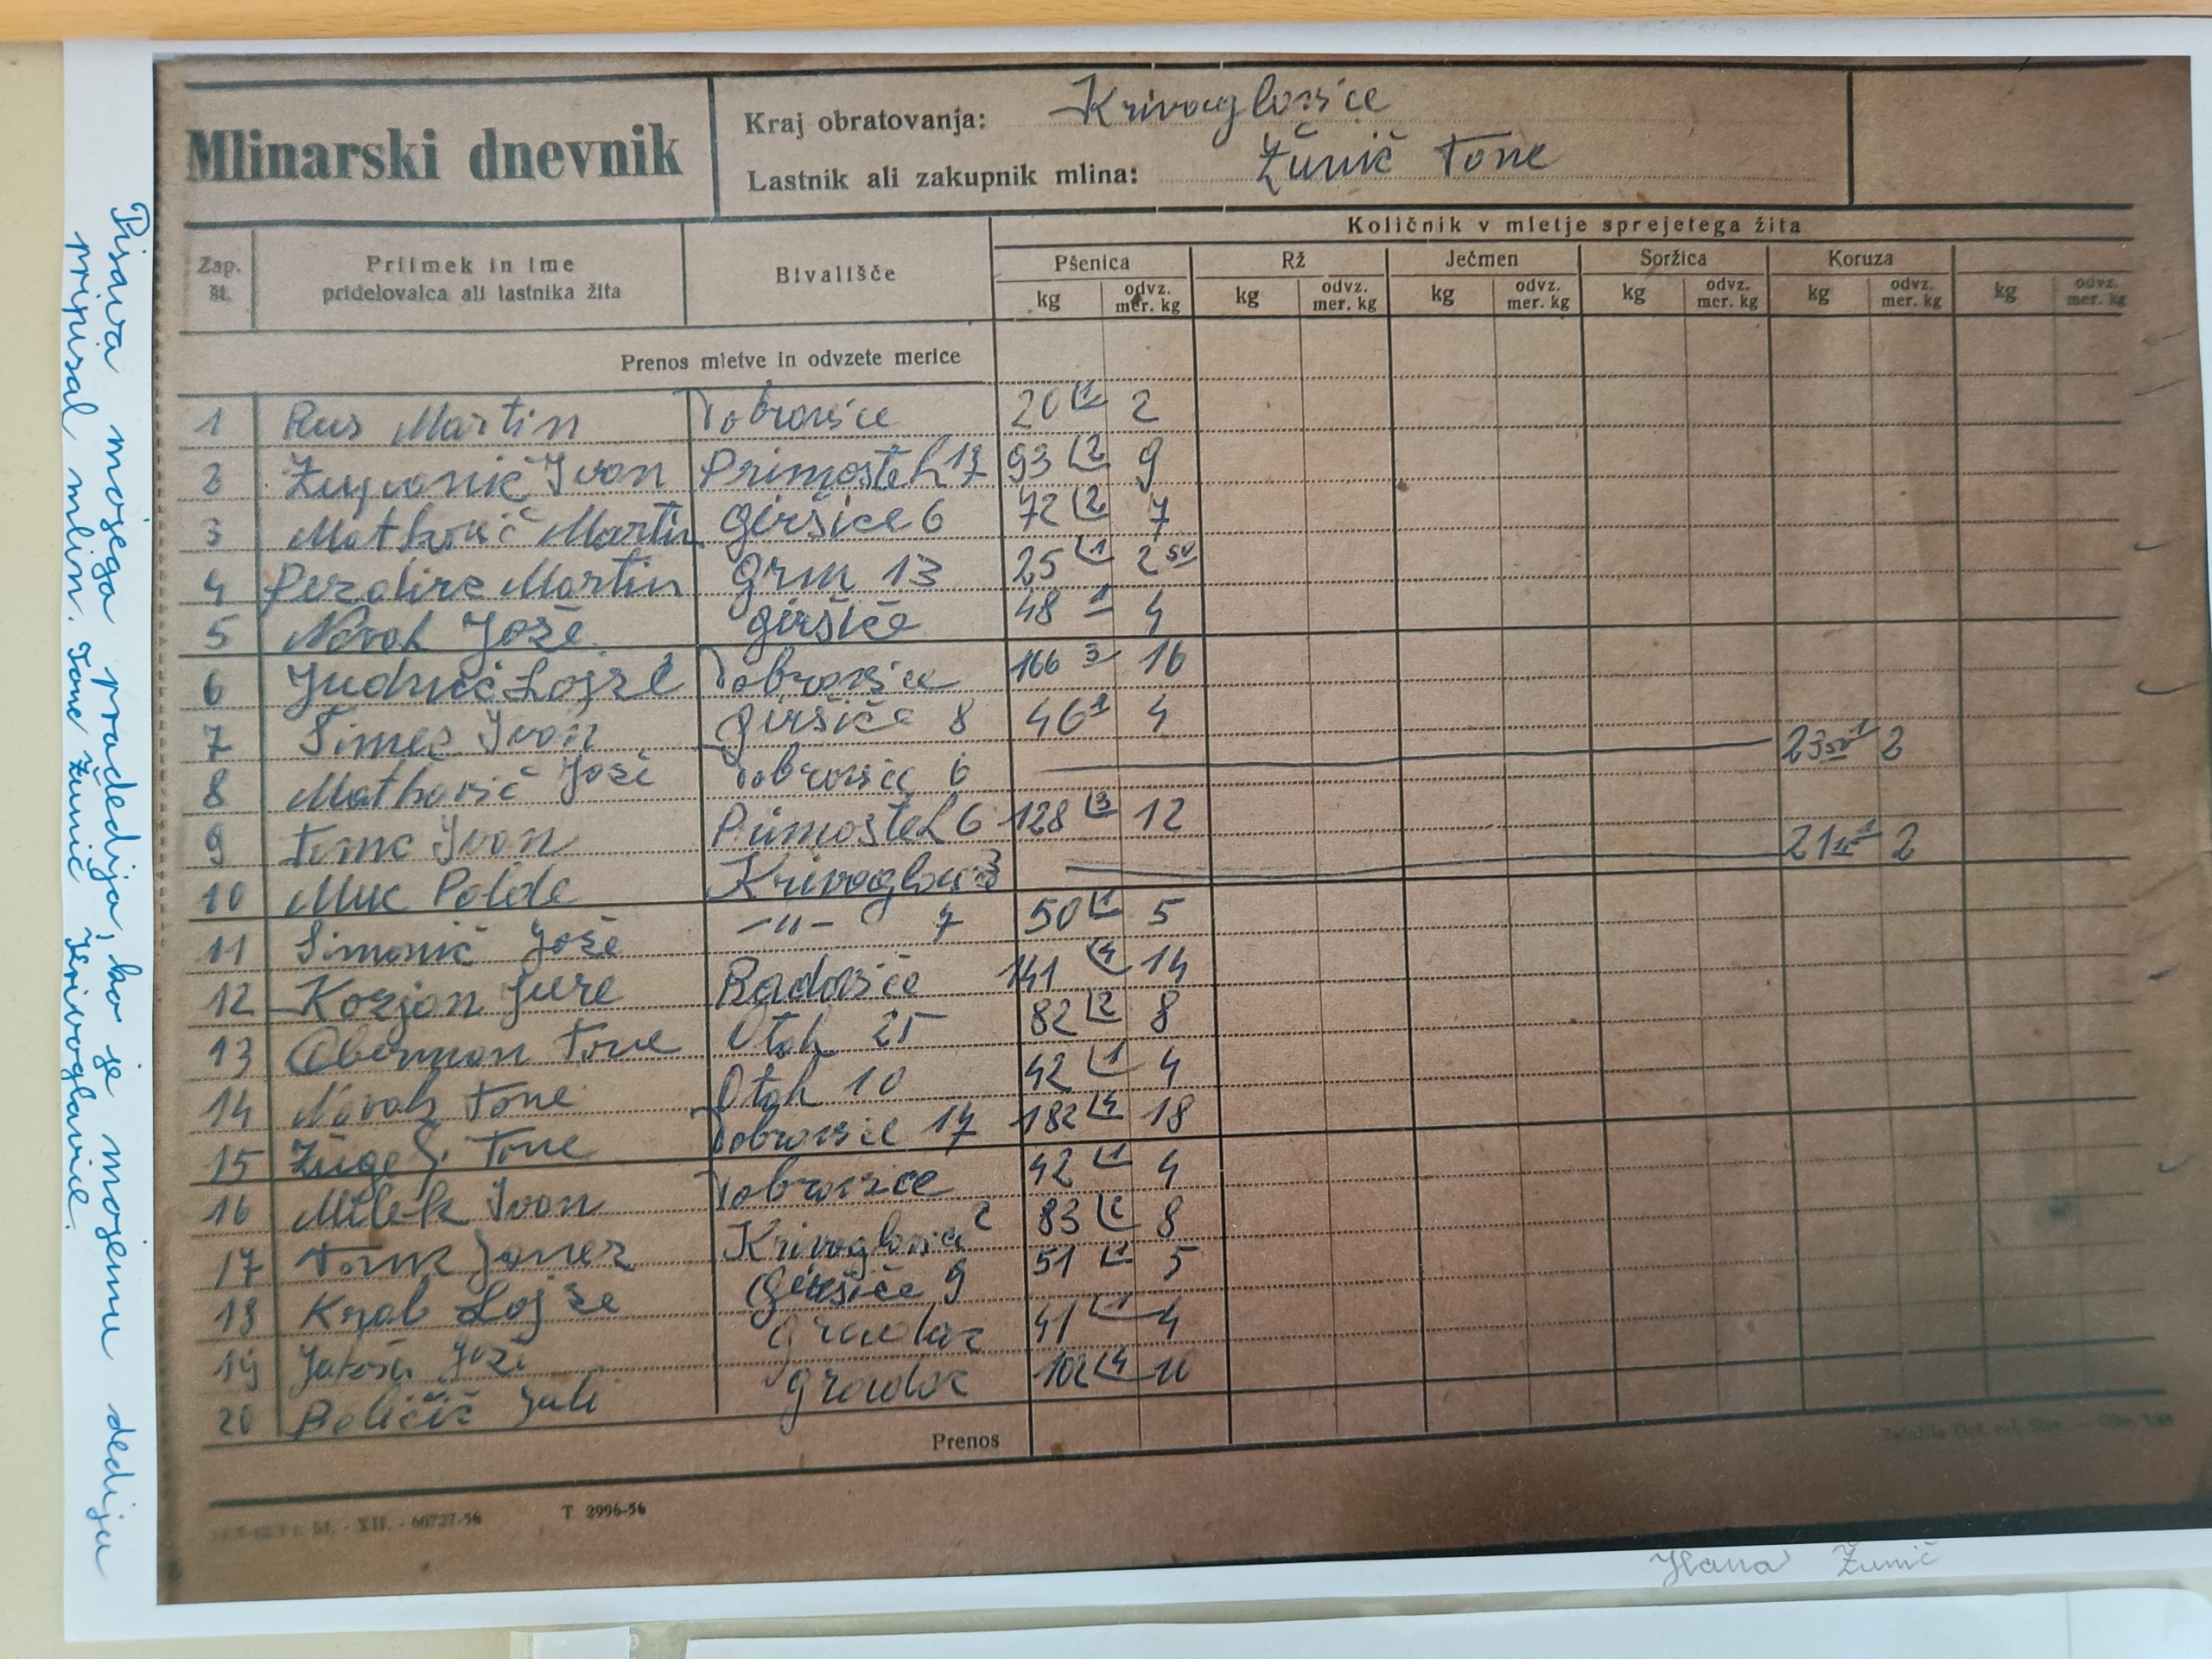 Mlinarski dnevnik
Kraj obratovanja: Krivoglavice
Lastnik ali zakupnik mlina: Žunič Tone
Količnik v mletje sprejetega žita
Zap. št. Priimek in ime pridelovalca ali lastnika žita Bivališče Pšenica Rž Ječmen Soržica Koruza
kg odvz. mer. kg kg odvz. mer. kg kg odvz. mer. kg kg odvz. mer. kg kg odvz. mer. kg kg odvz. mer. kg
Prenos mletve in odvzete merice
1 Rus Martin Dobravice 20 1 2
2 Župančič Ivan Primostek 17 93 2 9
3 Matkovič Martin Geršiče 6 72 2 7
4 Pezdirc Martin Grm 13 25 1 2 50
5 Novak Jože Geršiče 48 1 4
6 Judnič Lojze Dobravice 166 3 16
7 Simec Ivan Geršiče 8 46 1 4
8 Matkovič Jože Dobravice 6 23 50 1 2
9 Tomc Ivan Primostek 6 128 3 12
10 Muc Polde Krivoglav 3 21 1 2
11 Simonič Jože -"- 7 50 1 5
12 Kozjan Jure Radoviče 141 4 14
13 Oberman Tone Otok 25 82 2 8
14 Novak Tone Otok 10 42 1 4
15 Žugelj Tone Dobravice 17 182 4 18
16 Milek Ivan Dobravice 42 1 4
17 Tomc Janez Krivoglavice 2 83 2 8
18 Kral Lojze Geršiče 9 51 1 5
19 Jakša Jože Gradac 41 1 4
20 Beličič Gradac 102 4 10
Prenos
XII. - 60727-56 T 2996-56
Pisava mojega pradedija, ko je mojemu dediju
pripisal mlin. Tone Žunič Krivoglavice.
Hana Žunič